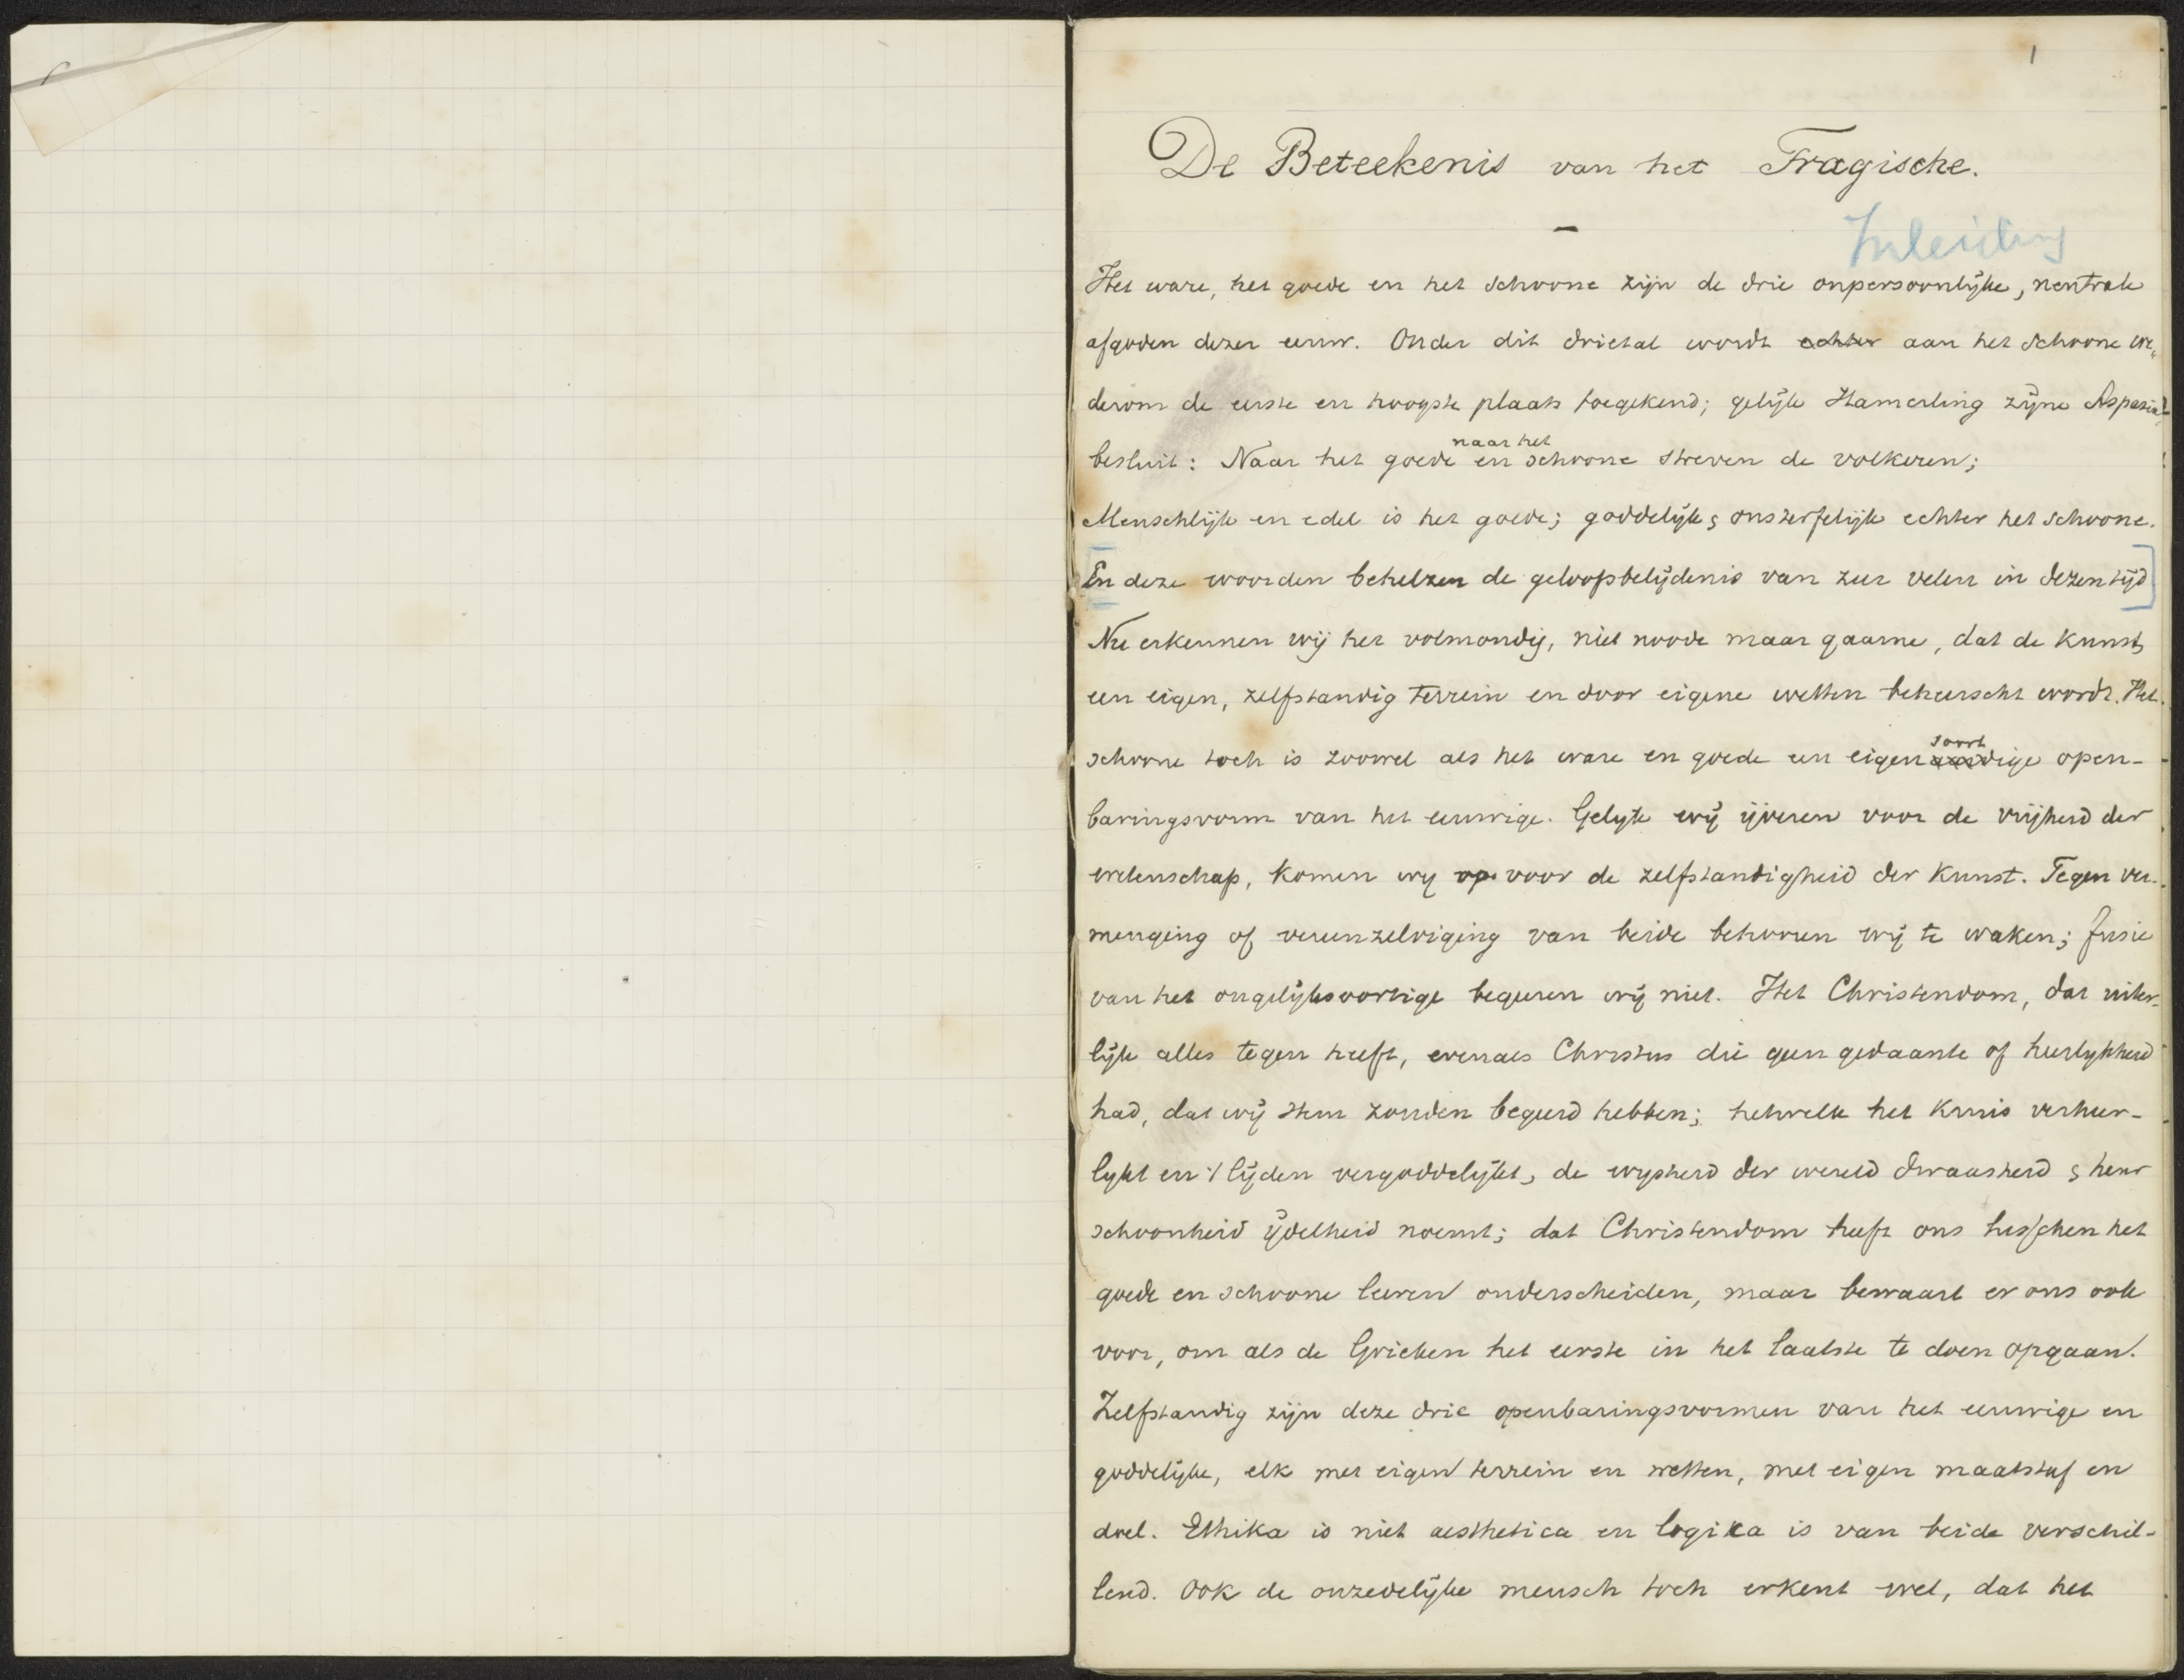 1
De Beteekenis van het Tragische.
Inleiding
Het ware, het goede en het schoone zijn de drie onpersoonlijke, neutrale
afgoden dezer eeuw. Onder dit drietal wordt echter aan het schoone we„
derom de eerste en hoogste plaats toegekend; gelijk Hamerling zijne Aspasia
besluit: Naar het goede en naar het schoone streven de volkeren;
Menschlijk en edel is het goede; goddelijk & onsterfelijk echter het schoone.
[En deze woorden behelzen de geloofsbelijdenis van zeer velen in dezen tijd]
Nu erkennen wij het volmondig, niet noode maar gaarne, dat de kunst
een eigen, zelfstandig terrein en door eigene wetten beheerscht wordt. Het
schoone toch is zoowel als het ware en goede een eigensoortige open-
baringsvorm van het eeuwige. Gelijk wij ijveren voor de vrijheid der
wetenschap, komen wij op voor de zelfstandigheid der kunst. Tegen ver-
menging of vereenzelviging van beide behooren wij te waken; fusie
van het ongelijksoortige begeeren wij niet. Het Christendom, dat uiter-
lijk alles tegen heeft, evenals Christus die geen gedaante of heerlijkheid
had, dat wij Hem zouden begeerd hebben; hetwelk het kruis verheer-
lijkt en 't lijden vergoddelijkt, de wijsheid der wereld dwaasheid & heur
schoonheid ijdelheid noemt; dat Christendom heeft ons tusschen het
goede en schoone leeren onderscheiden, maar bewaart er ons ook
voor, om als de Grieken het eerste in het laatste te doen opgaan.
Zelfstandig zijn deze drie openbaringsvormen van het eeuwige en
goddelijke, elk met eigen terrein en wetten, met eigen maatstaf en
doel. Ethika is niet aesthetica en logika is van beide verschil-
lend. Ook de onzedelijke mensch toch erkent wel, dat het